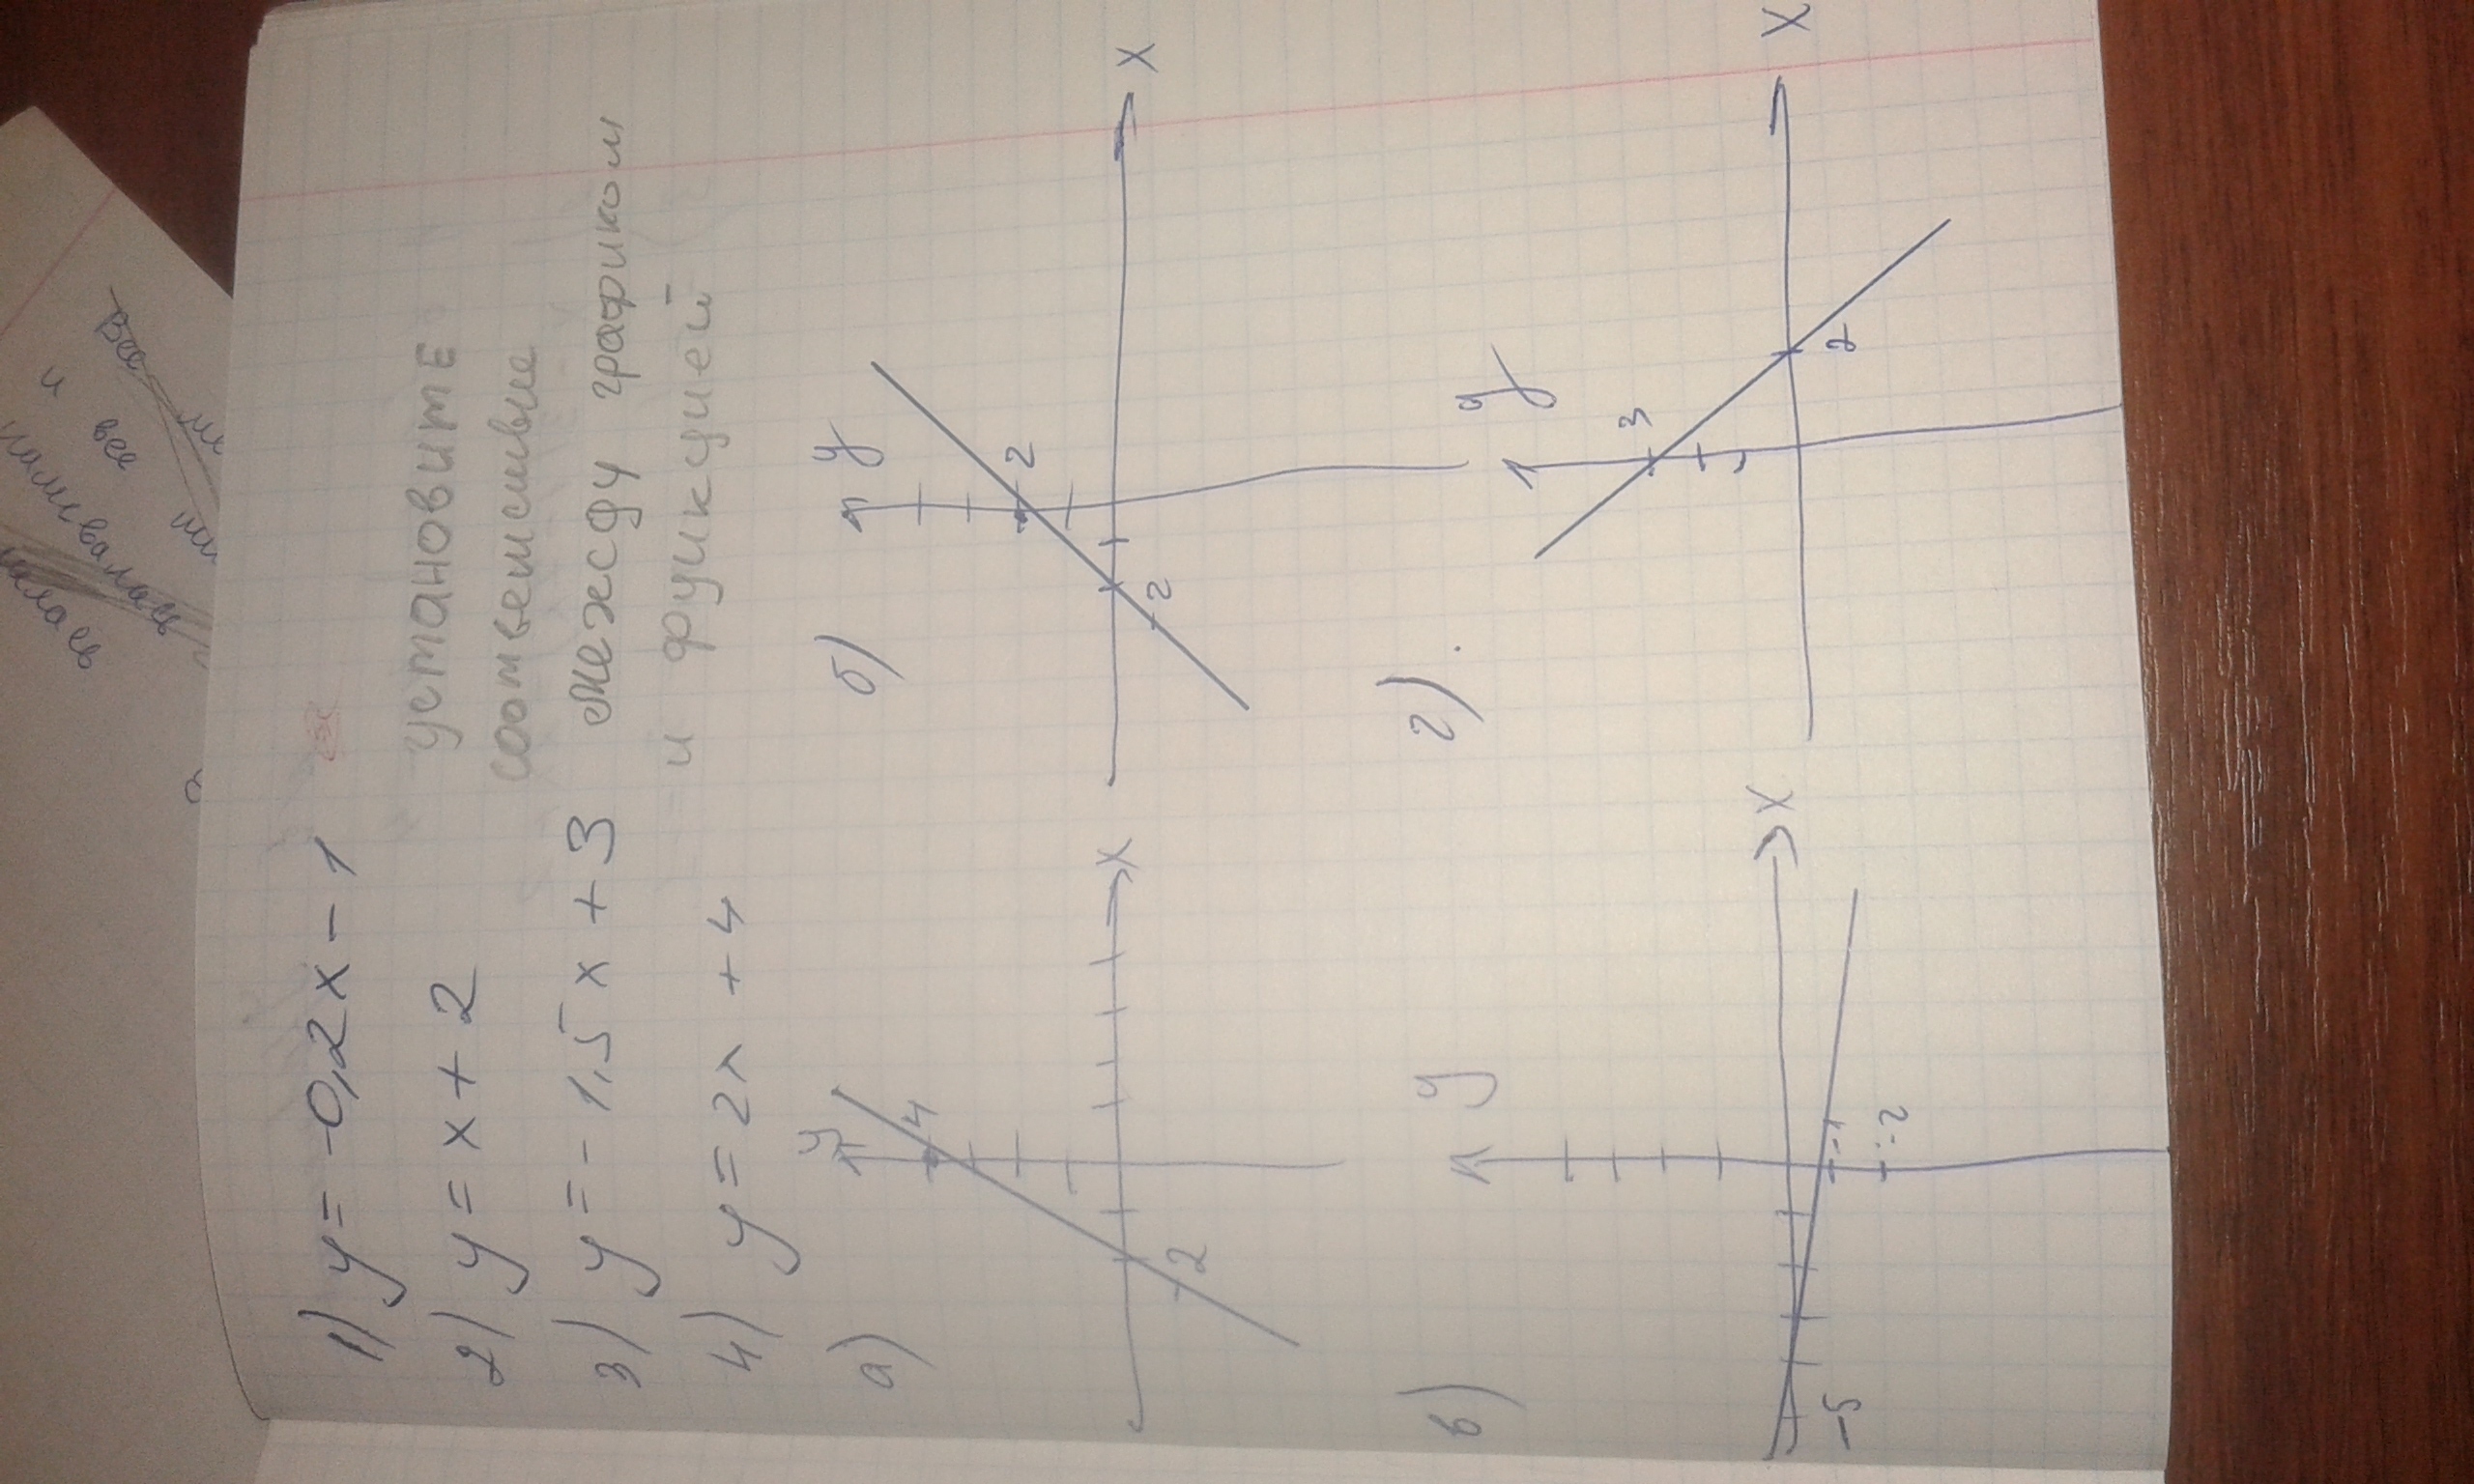 1) y = -0,2x - 1
2) y = x + 2
3) y = - 1,5x + 3
4) y = 2x + 4
установите
соответствие
между графиком
и функцией
а)
y
4
2
x
б)
y
2
2
x
в)
y
-1
-2
-5
x
г)
y
3
2
x
все
и все